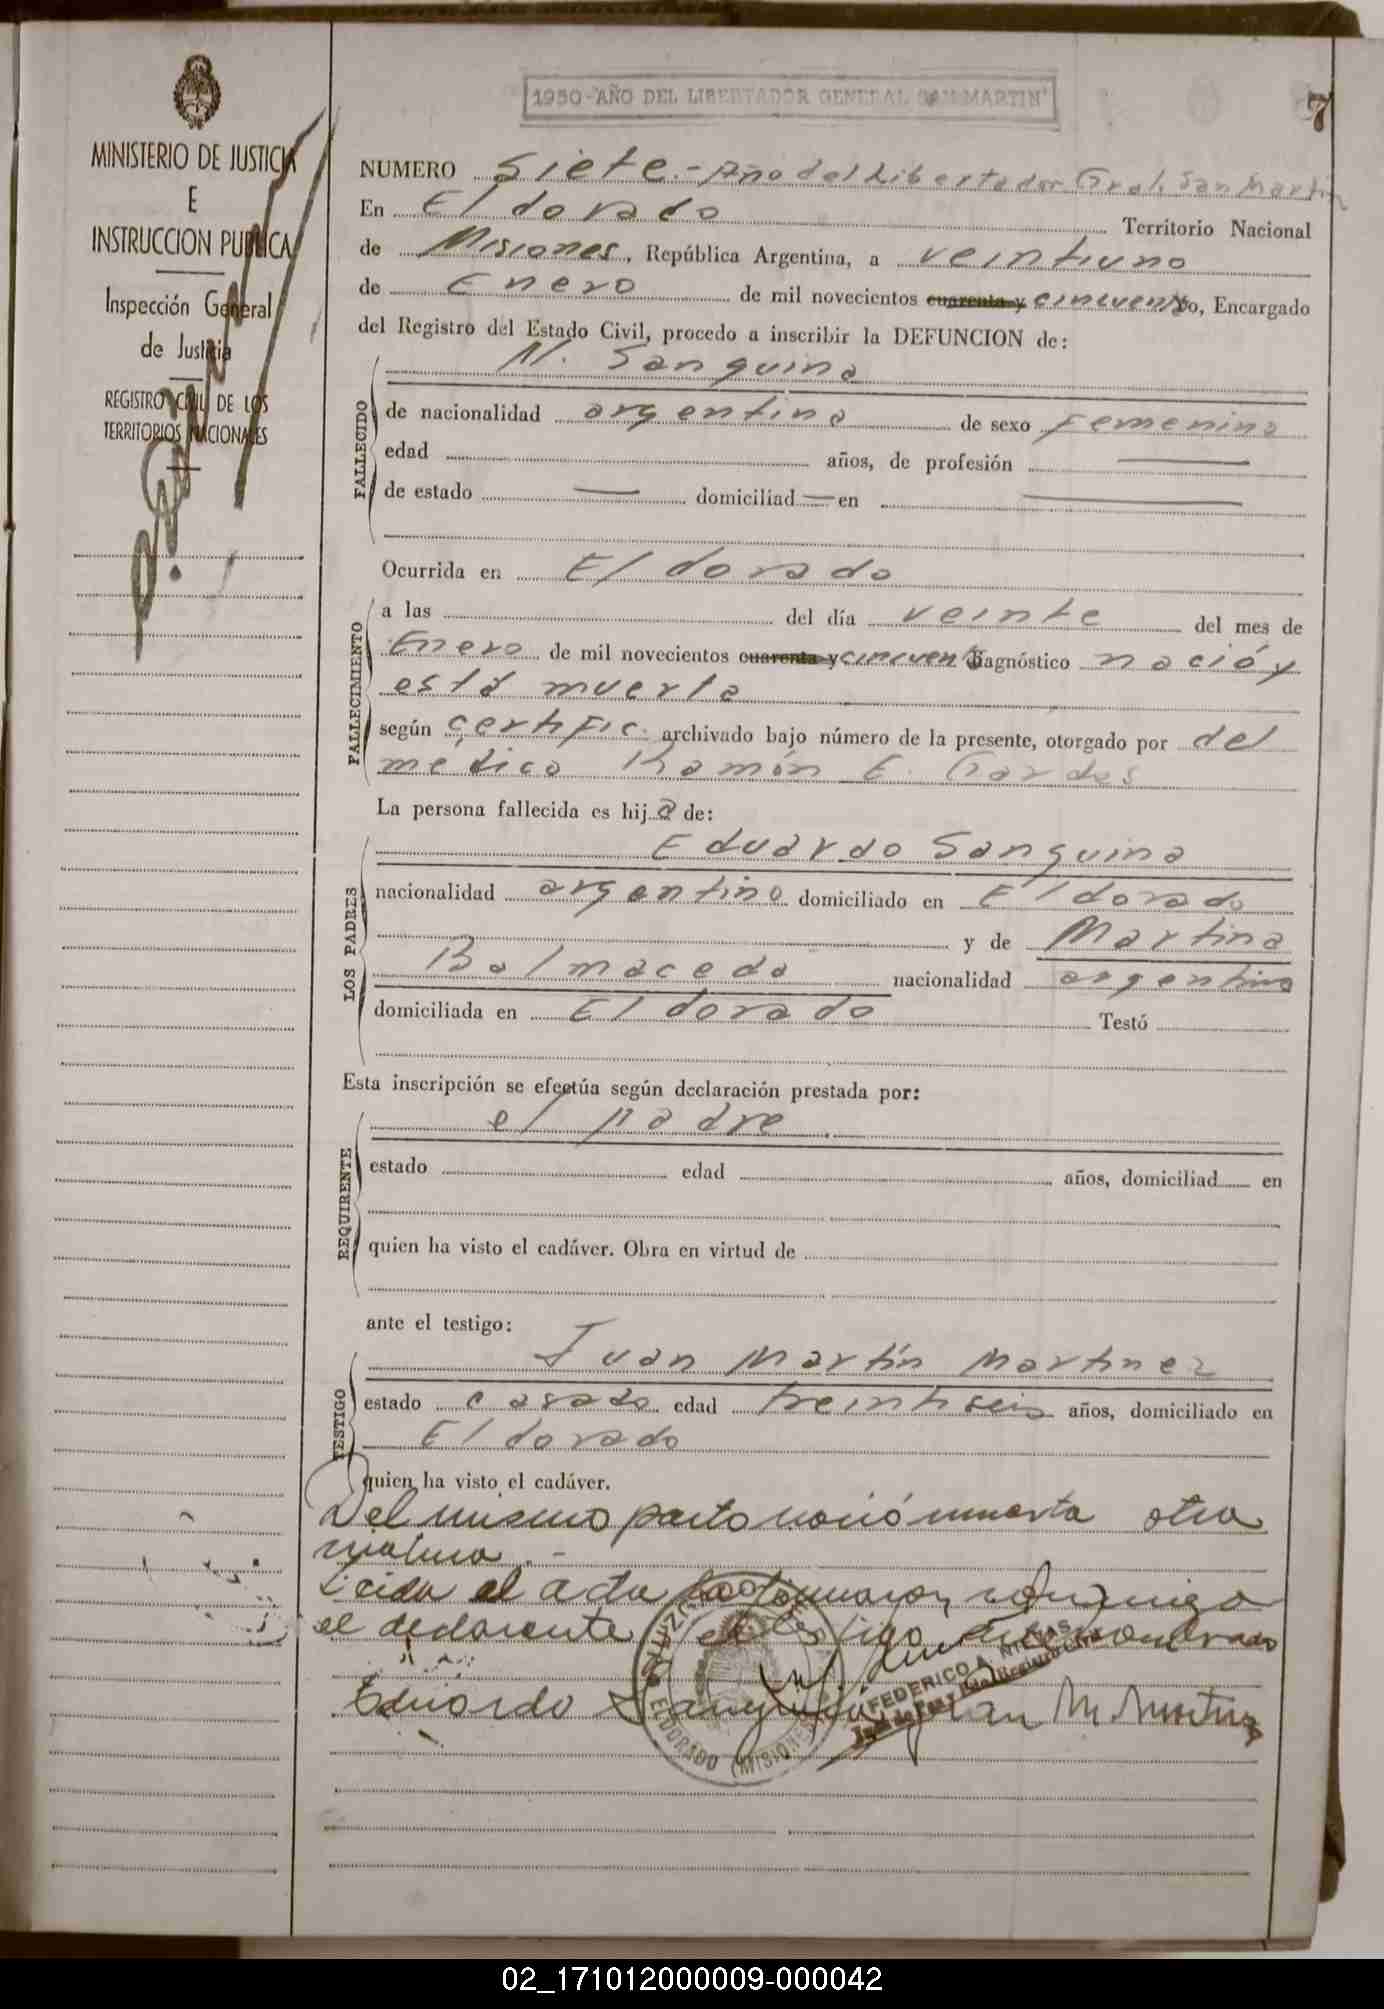 1950 - AÑO DEL LIBERTADOR GENERAL SAN MARTIN
7
MINISTERIO DE JUSTICIA
E
INSTRUCCION PUBLICA
Inspección General
de Justicia
REGISTRO CIVIL DE LOS
TERRITORIOS NACIONALES
NUMERO Siete.- Año del Libertador Gral. San Martín
En El dorado Territorio Nacional
de Misiones, República Argentina, a veintiuno
de Enero de mil novecientos cuarenta y cincuenta yo, Encargado
del Registro del Estado Civil, procedo a inscribir la DEFUNCION de:
FALLECIDO
N. Sanguina
de nacionalidad argentina de sexo Femenino
edad años, de profesión —
de estado — domiciliad — en —
FALLECIMIENTO
Ocurrida en El dorado
a las del día veinte del mes de
Enero de mil novecientos cuarenta y cincuenta diagnóstico nació y
está muerta
según certific. archivado bajo número de la presente, otorgado por del
médico Ramón E. Gardes
La persona fallecida es hija de:
LOS PADRES
Eduardo Sanguina
nacionalidad argentino domiciliado en El dorado
y de Martina
Balmaceda nacionalidad argentina
domiciliada en El dorado Testó
Esta inscripción se efectúa según declaración prestada por:
REQUIRENTE
el padre
estado edad años, domiciliad en
quien ha visto el cadáver. Obra en virtud de
ante el testigo:
TESTIGO
Juan Martín Martinez
estado casado edad treintiseis años, domiciliado en
El dorado
quien ha visto el cadáver.
Del mismo parto nació muerta otra
Leida el acta la firmaron conmigo
el declarante el testigo
FEDERICO A.
Juez de Paz y
Eduardo Sanguina Juan M Martinez
ELDORADO (MISIONES)
02_171012000009-000042